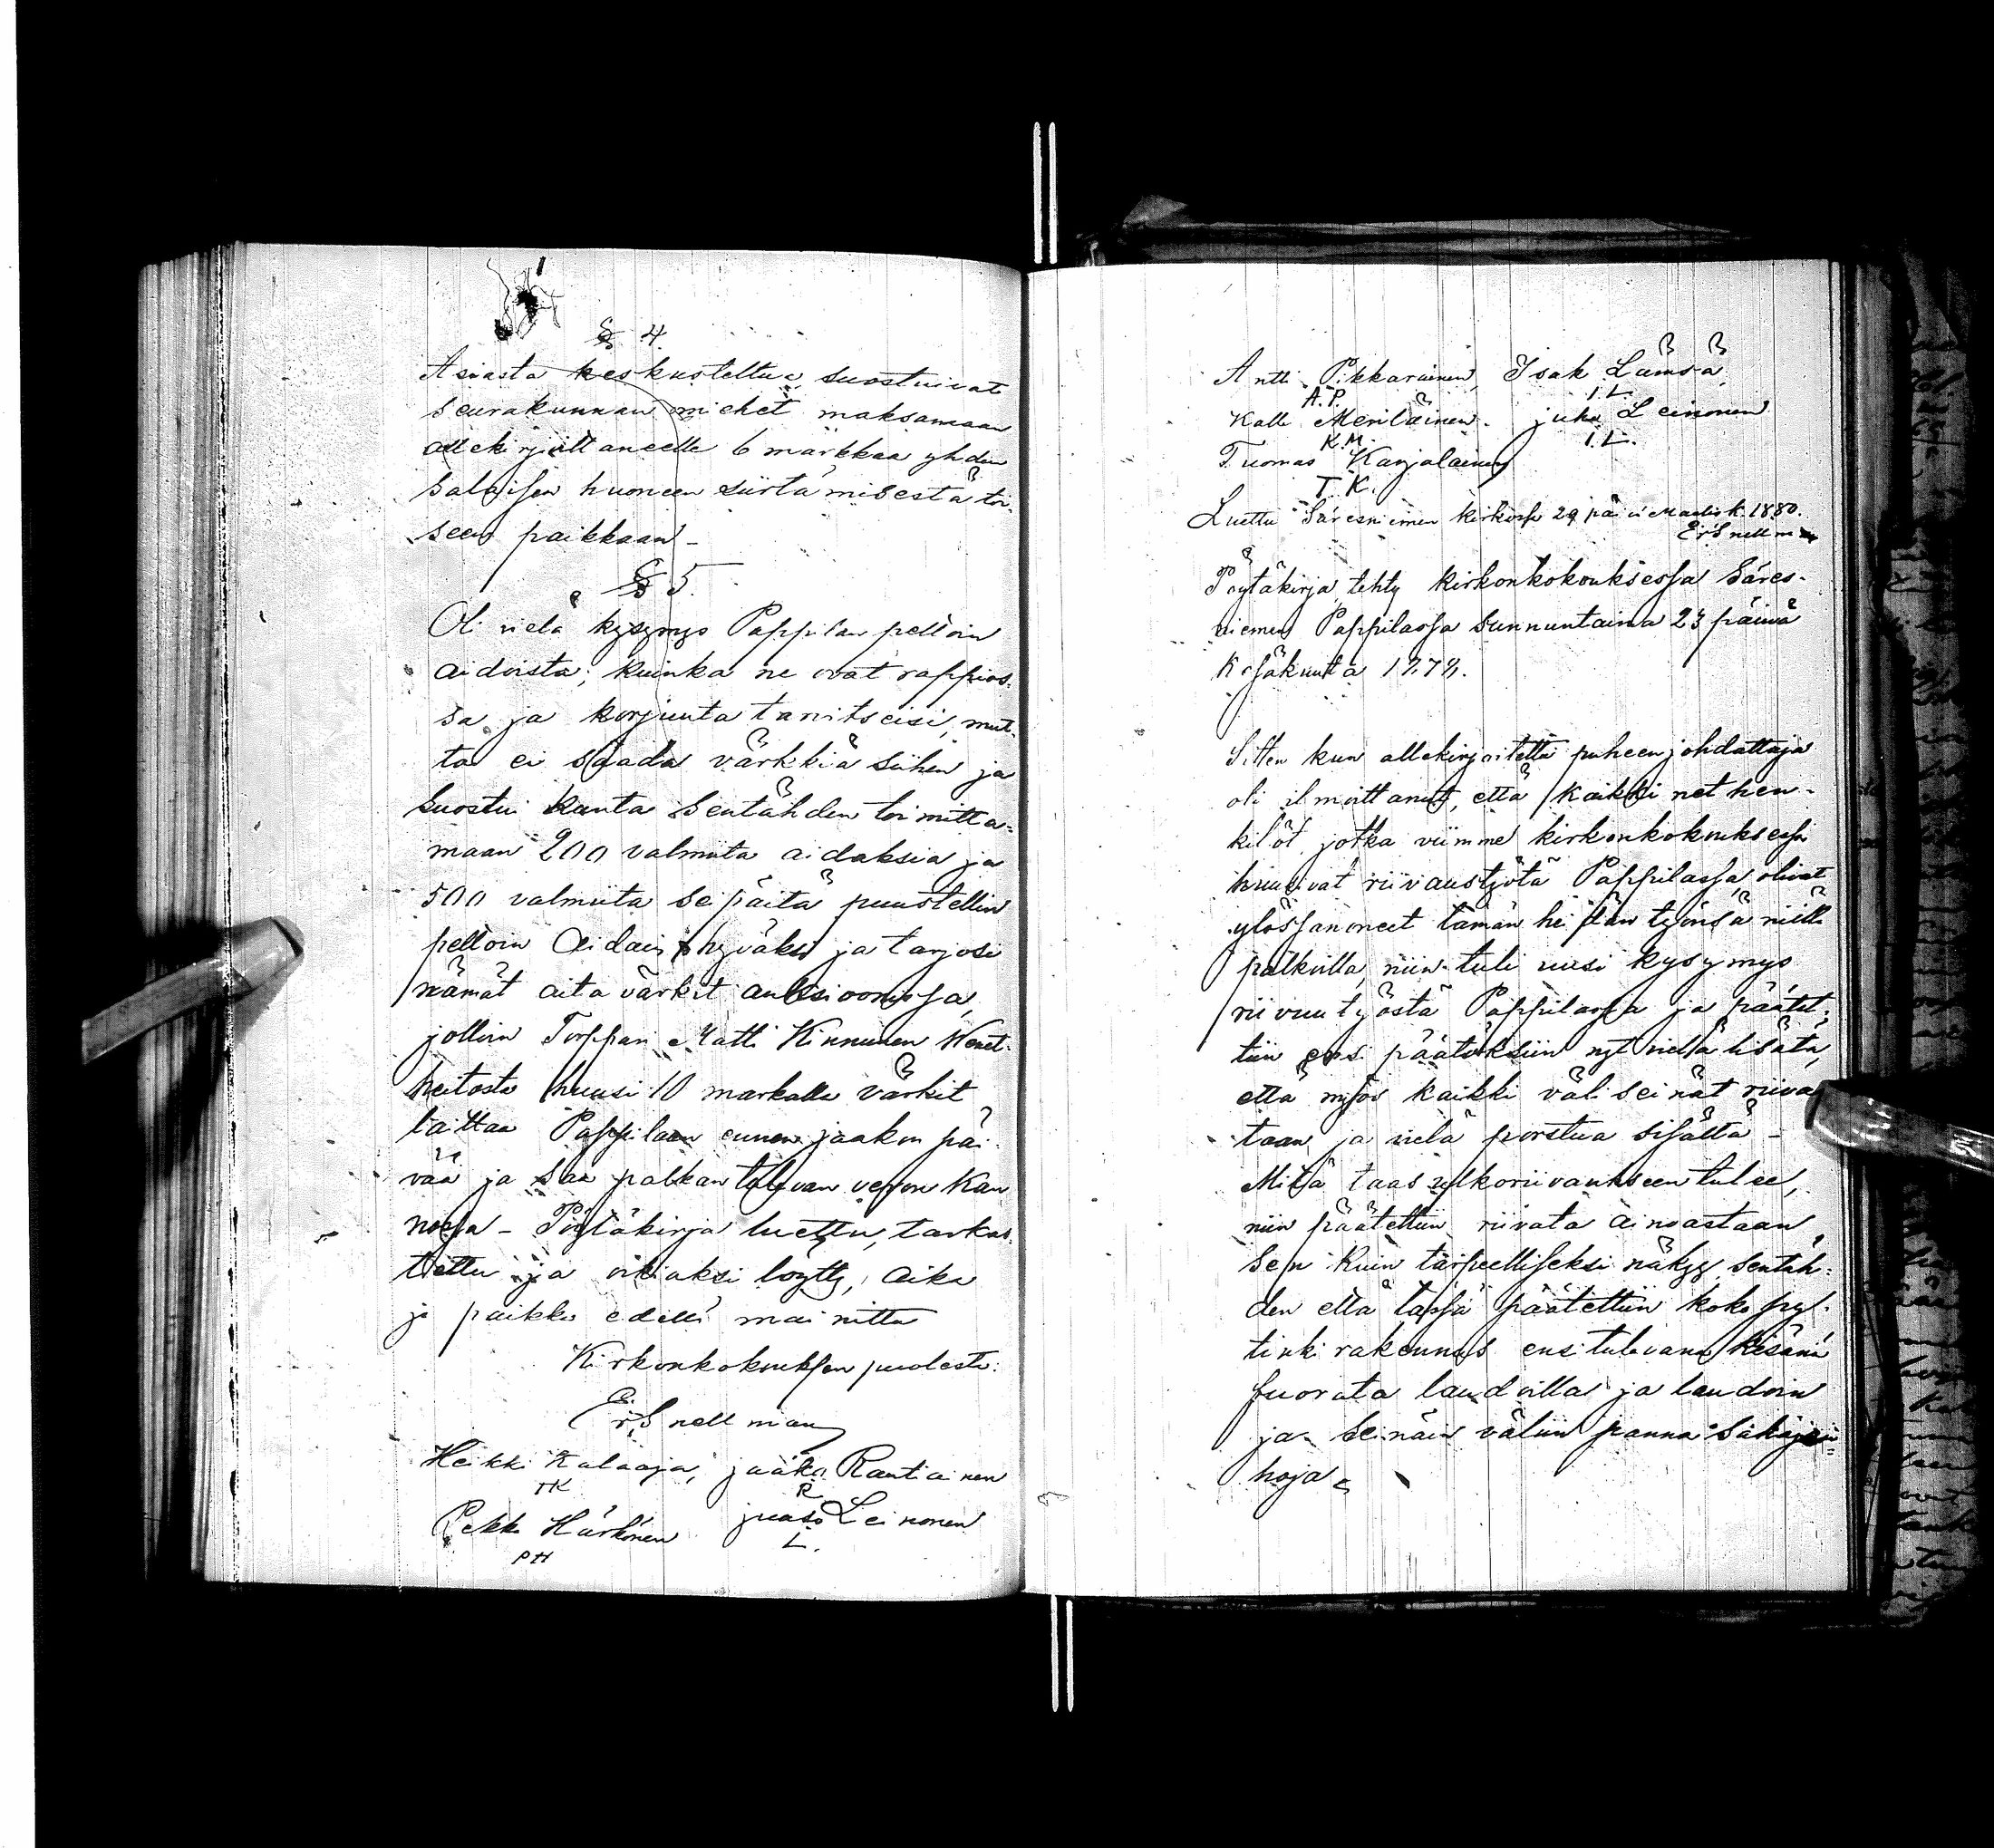 § 4
Asiasta keskusteltua, suostuivat
seurakunnan miehet maksamaan
allekirjoittaneelle 6 markkaa yhden
salaisen huoneen siirtämisestä toi-
seen paikkaan –
§ 5.
Oli vielä kysymys Pappilan peltoin
aidoista; kuinka ne ovat rappios-
sa ja korjuuta tarvitseisi, mut-
ta ei saada värkkiä siihen ja
suostui kunta sentähden toimitta-
maan 200 valmiita aidaksia ja
500 valmiita seipäitä puustellin
peltoin aidain hyväksi ja tarjosi
nämät aita värkit auksioonissa,
jolloin Torppari Matti Kinnunen
heitosta huusi 10 markalla värkit
laittaa Pappilaan ennen jaakon päi
vää ja saa palkan tulevan veron kan
nossa – Pöytäkirja luettu, tarkas-
tettu ja oikiaksi löytty, aika
ja paikka edellä mainittu
Kirkonkokouksen puolesta:
Er. Snellman
Heikki Kalaaja, jaako Rautiainen
HK R
Pekka Härkönen juaso Leinonen
PH L.
Antti Pikkarainen, Isak Lämsä
A.P. I.L.
Kalle Meriläinen. juho Leinonen
K.M. I.L.
Tuomas Karjalainen
T.K.
Luettu Säresniemen kirkossa 29 päivä Maalisk. 1880.
Er Snellman
Pöytäkirja, tehty kirkonkokouksessa Säres-
niemen Pappilassa sunnuntaina 23 päivä
Kesäkuuta
Sitten kun allekirjoitettu puheenjohdattaja
oli ilmoittanut, että kaikki net hen-
kilöt, jotka viimme kirkonkokouksessa
huusivat riivaustyötä Pappilassa, olivat
ylössanoneet tämän heidän työnsä niillä
palkoilla, niin tuli uusi kysymys
riivuutyöstä Pappilassa ja päätet-
tiin ensi päätöksiin nyt vielä lisätä,
että myös kaikki väliseinät riiva
taan ja vielä porstua sisältä –
Mitä taas ulkoriivaukseen tulee,
niin päätettiin riivata ainoastaan,
sen kuin tarpeelliseksi näkyy, sentäh-
den että tässä päätettiin koko pyt-
tinki rakennus ensi tulevana kesänä
fuorata laudoilla ja laudoin
ja seinäin väliin panna sahajau-
hoja